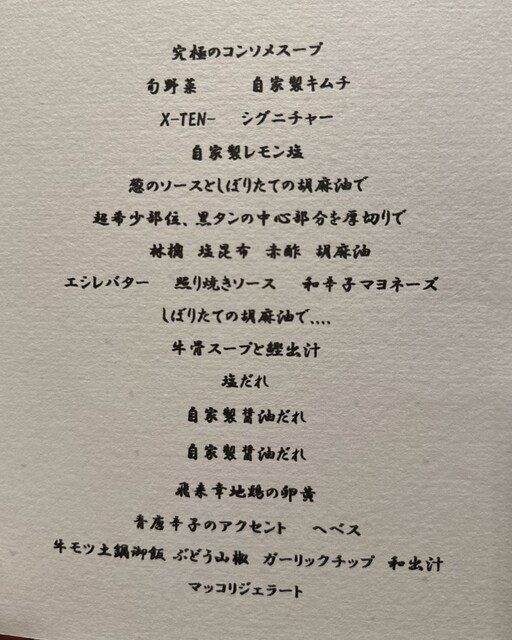 究極のコンソメスープ
旬野菜 自家製キムチ
X-TEN- シグニチャー
自家製レモン塩
葱のソースとしぼりたての胡麻油で
超希少部位、黒タンの中心部分を厚切りで
林檎 塩昆布 赤酢 胡麻油
エシレバター 照り焼きソース 和辛子マヨネーズ
しぼりたての胡麻油で....
牛骨スープと鰹出汁
塩だれ
自家製醤油だれ
自家製醤油だれ
飛来幸地鶏の卵黄
青唐辛子のアクセント ヘベス
牛モツ土鍋御飯 ぶどう山椒 ガーリックチップ 和出汁
マッコリジェラート